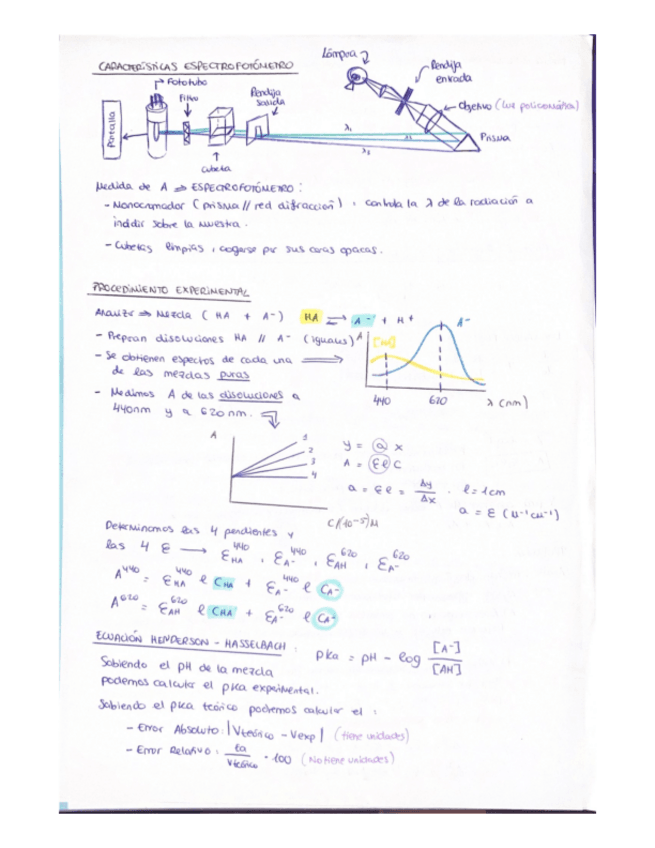 CARACTERÍSTICAS ESPECTROFOTÓMETRO
Lámpara
Rendija entrada
Objetivo (luz policromática)
Prisma
Fototubo
Filtro
Rendija salida
Pantalla
Cubeta
λ₁
λ₂
Medida de A ⇒ ESPECTROFOTÓMETRO:
- Monocromador (prisma // red difracción), controla la λ de la radiación a
incidir sobre la muestra.
- Cubetas limpias, cogerse por sus caras opacas.
PROCEDIMIENTO EXPERIMENTAL
Analizar ⇒ Mezcla (HA + A-) HA ⇌ A- + H+
- Preparan disoluciones HA // A- (iguales)
- Se obtienen espectros de cada una
de las mezclas puras
- Medimos A de las disoluciones a
440nm y a 620nm.
A
[HA]
A-
440
620
λ (nm)
A
1
2
3
4
C/(10⁻⁵)M
y = a x
A = εl C
a = εl = Δy/Δx . l = 1cm
a = ε (M⁻¹cm⁻¹)
Determinamos las 4 pendientes y
las 4 ε → ε⁴⁴⁰HA, ε⁴⁴⁰A-, ε⁶²⁰AH, ε⁶²⁰A-
A⁴⁴⁰ = ε⁴⁴⁰HA l CHA + ε⁴⁴⁰A- l CA-
A⁶²⁰ = ε⁶²⁰AH l CHA + ε⁶²⁰A- l CA-
ECUACIÓN HENDERSON-HASSELBACH: pKa = pH - log [A-]/[AH]
Sabiendo el pH de la mezcla
podemos calcular el pKa experimental.
Sabiendo el pKa teórico podremos calcular el:
- Error Absoluto: |Vteórico - Vexp| (tiene unidades)
- Error Relativo: Ea/Vteórico · 100 (No tiene unidades)